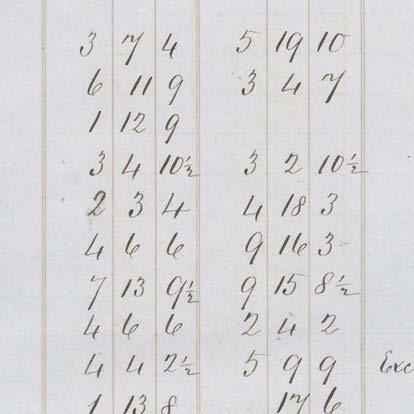 3 7 4 5 19 10
6 11 9 3 4 7
1 12 9
3 4 10½ 3 2 10½
2 3 4 4 18 3
4 6 6 9 16 3
7 13 9½ 9 15 8½
4 6 6 2 4 2
4 4 2½ 5 9 9 Exc
1 13 8 17 6